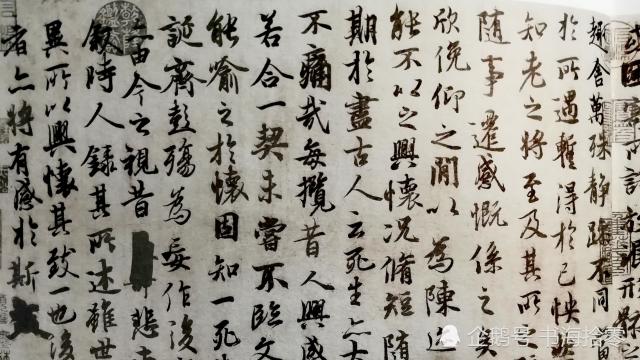 或因寄所託放浪形骸之
趣舍萬殊靜躁不同
於所遇蹔得於己怏
知老之將至及其所
隨事遷感慨係之
欣俛仰之閒以為陳迹
能不以之興懷況脩短隨
期於盡古人云死生亦大
不痛哉每攬昔人興感
若合一契未嘗不臨文
能喻之於懷固知一死
誕齊彭殤為妄作後
由今之視昔悲夫
敘時人錄其所述雖世
異所以興懷其致一也後
者亦將有感於斯文
企鹅号 书海拾零